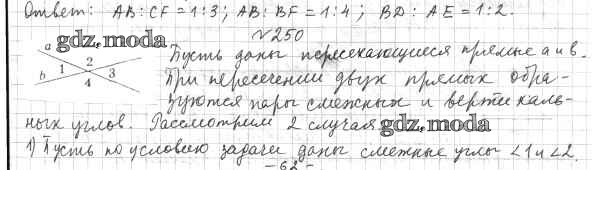 Ответ: AB:CF = 1:3; AB:BF = 1:4; BD:AE = 1:2.
№250
a gdz.moda
b 1 2 3 4
Пусть даны пересекающиеся прямые a и b.
При пересечении двух прямых обра-
зуются пары смежных и вертикаль-
ных углов. Рассмотрим 2 случая gdz.moda
1) Пусть по условию задачи даны смежные углы ∠1 и ∠2.
-62-